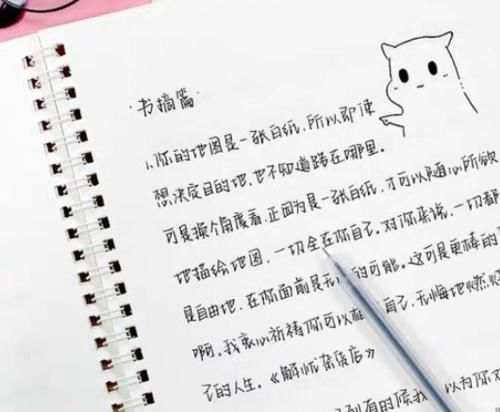 ·书摘篇·
1、你的地图是一张白纸,所以即使
想决定目的地,也不知道路在哪里。
可是换个角度看,正因为是一张白纸,才可以随心所欲
地描绘地图,一切全在你自己。对你来说,一切都
是自由地,在你面前是无 的可能。这可是更棒的
啊。我衷心祈祷你可以 自己,无悔地燃
己的人生。《解忧杂货店》
有的时候我 以为你